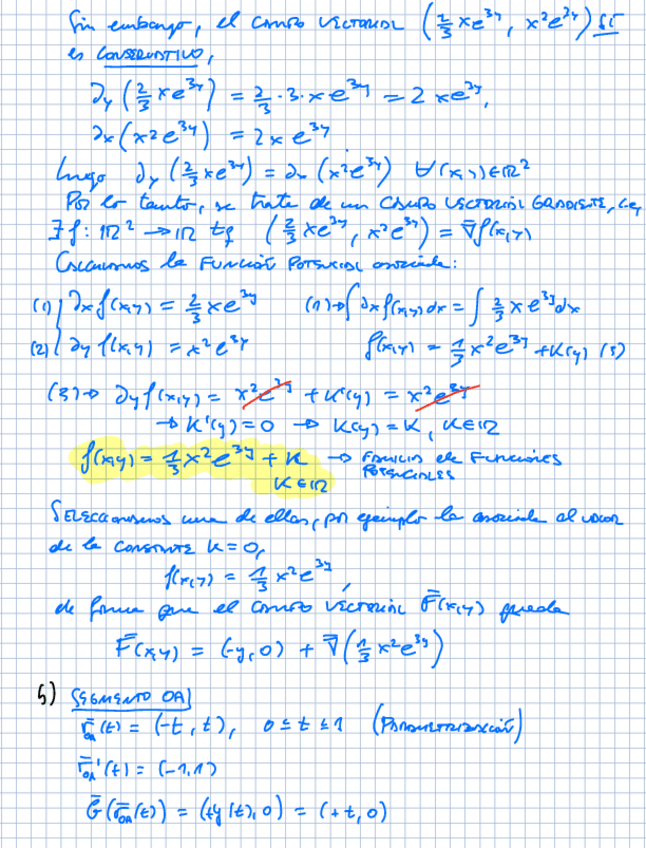 Sin embargo, el CAMPO VECTORIAL (2/3 xe^{3y}, x²e^{3y}) SÍ
es CONSERVATIVO,
∂y (2/3 xe^{3y}) = 2/3 · 3 · xe^{3y} = 2xe^{3y},
∂x (x²e^{3y}) = 2xe^{3y}
Luego ∂y (2/3 xe^{3y}) = ∂x (x²e^{3y}) ∀(x,y)∈ℝ²
Por lo tanto, se trata de un CAMPO VECTORIAL GRADIENTE, i.e,
∃f: ℝ² → ℝ tq (2/3 xe^{3y}, x²e^{3y}) = ∇̄f(x,y)
CALCULAMOS la FUNCIÓN POTENCIAL asociada:
(1) ∂x f(x,y) = 2/3 xe^{3y} (1)→ ∫ ∂x f(x,y) dx = ∫ 2/3 x e^{3y} dx
(2) ∂y f(x,y) = x²e^{3y} f(x,y) = 1/3 x²e^{3y} + K(y) (3)
(3)→ ∂y f(x,y) = x²e^{3y} + K'(y) = x²e^{3y}
→ K'(y) = 0 → K(y) = K, K∈ℝ
f(x,y) = 1/3 x²e^{3y} + K → FAMILIA de FUNCIONES
K∈ℝ POTENCIALES
SELECCIONAMOS una de ellas, por ejemplo la asociada al VALOR
de la CONSTANTE K=0,
f(x,y) = 1/3 x²e^{3y},
de forma que el CAMPO VECTORIAL F̄(x,y) queda
F̄(x,y) = (-y,0) + ∇̄(1/3 x²e^{3y})
b) SEGMENTO OA|
r̄_{OA}(t) = (-t, t), 0 ≤ t ≤ 1 (PARAMETRIZACIÓN)
r̄_{OA}'(t) = (-1,1)
Ḡ(r̄_{OA}(t)) = (+y(t),0) = (+t,0)